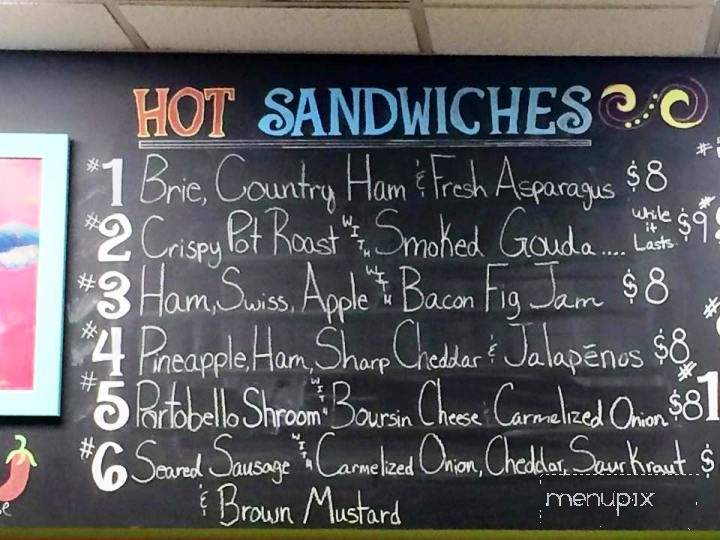 HOT SANDWICHES
#1 Brie, Country Ham & Fresh Asparagus $8
#2 Crispy Pot Roast WITH Smoked Gouda.... while it Lasts $9
#3 Ham, Swiss, Apple WITH Bacon Fig Jam $8
#4 Pineapple, Ham, Sharp Cheddar & Jalapēnos $8
#5 Portobello Shroom WITH Boursin Cheese Carmelized Onion $8
#6 Seared Sausage WITH Carmelized Onion, Cheddar, Saur Kraut $
& Brown Mustard
menupix